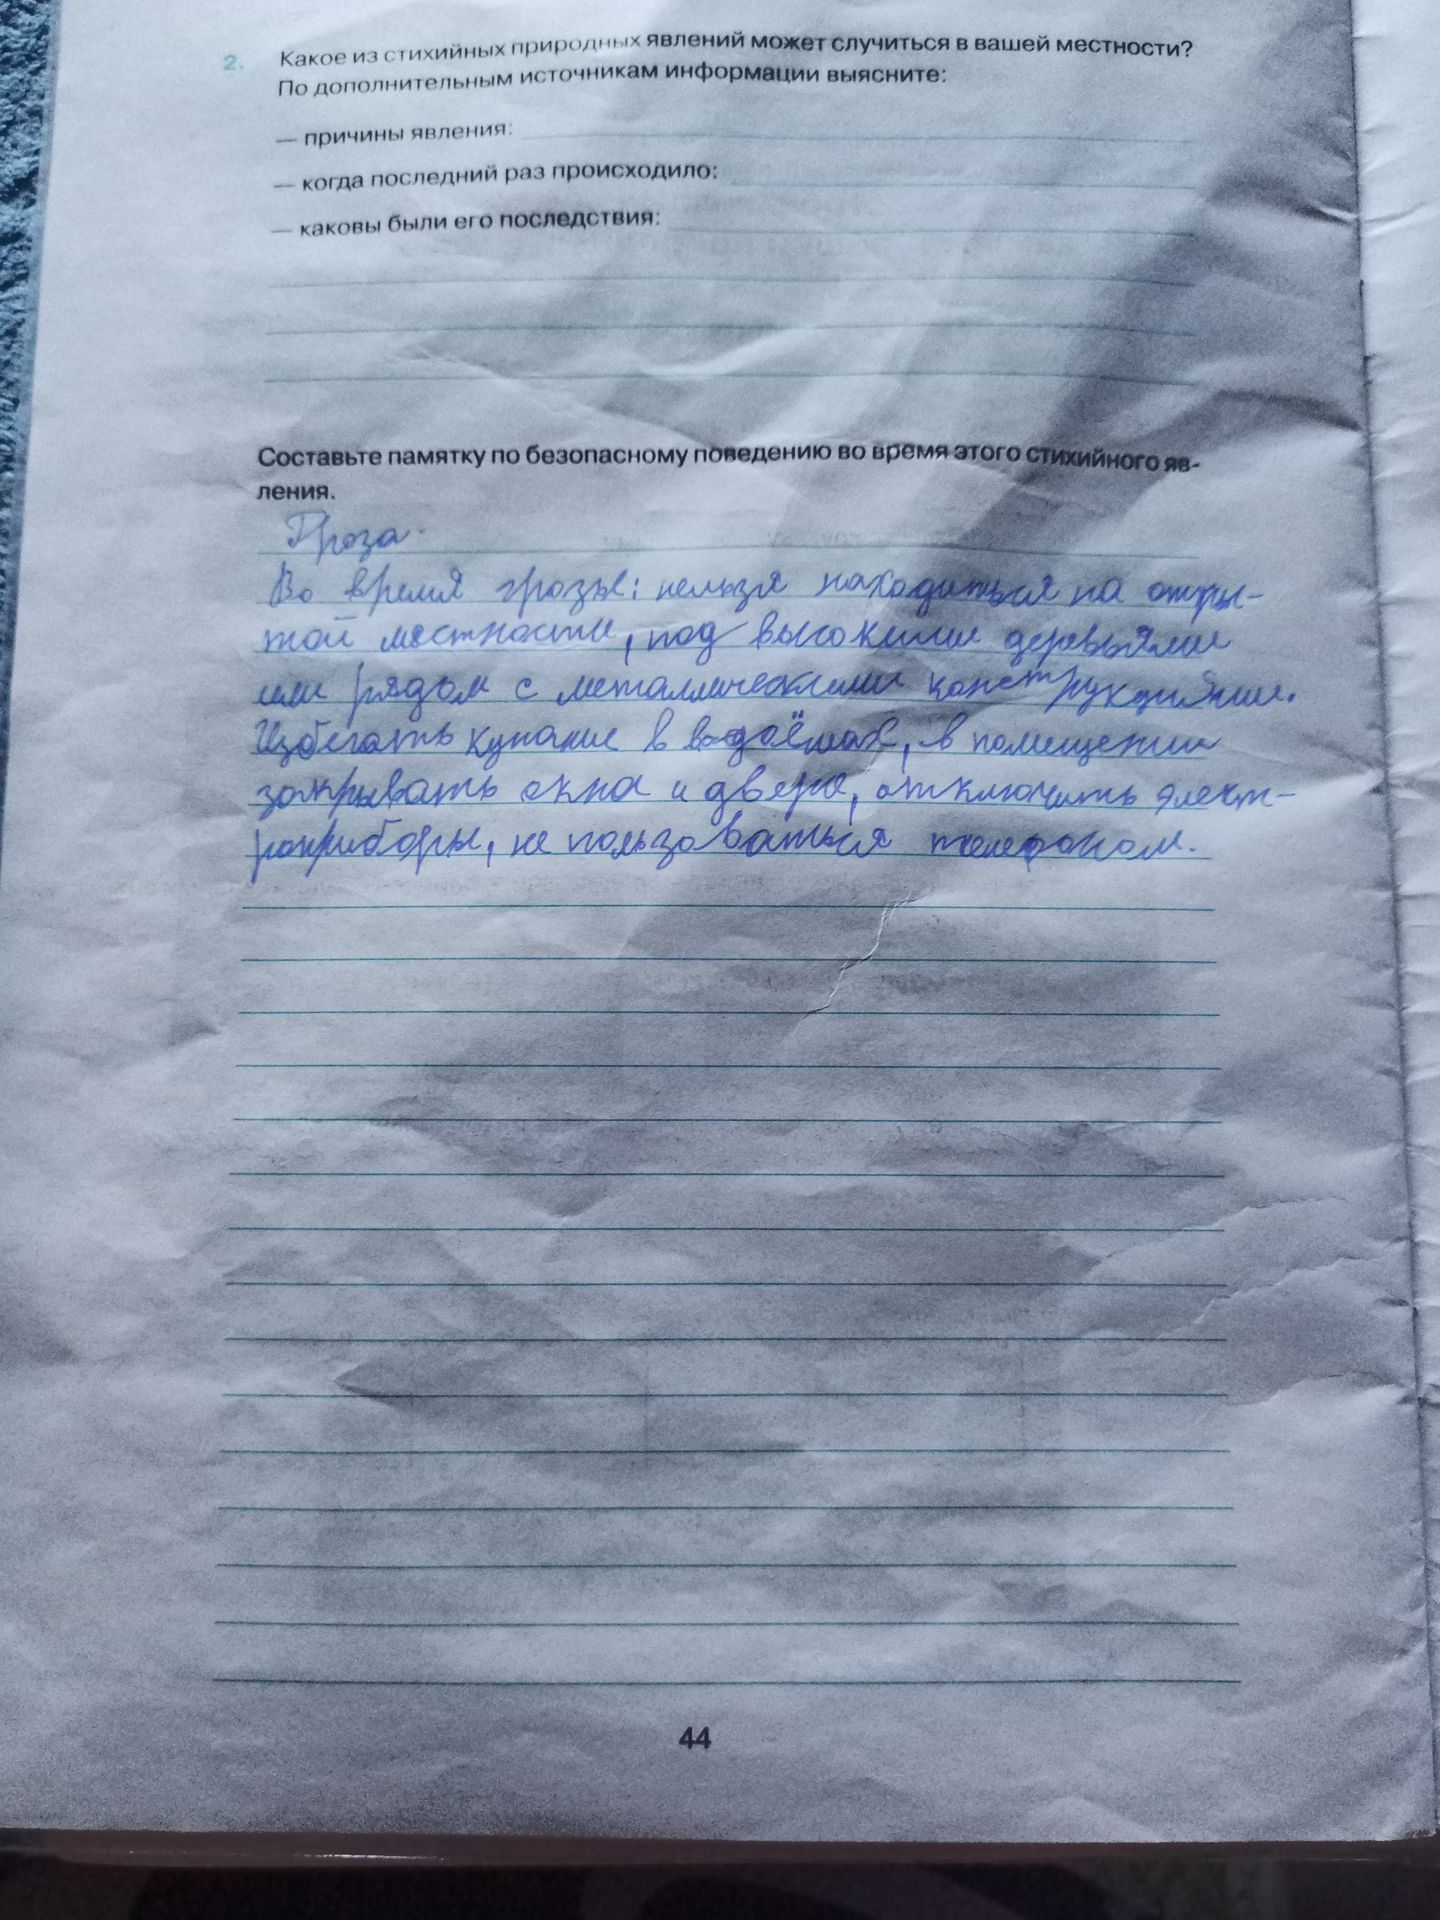 2. Какое из стихийных природных явлений может случиться в вашей местности?
По дополнительным источникам информации выясните:
— причины явления:
— когда последний раз происходило:
— каковы были его последствия:
Составьте памятку по безопасному поведению во время этого стихийного яв-
ления.
Гроза.
Во время грозы: нельзя находиться на откры-
той местности, под высокими деревьями
или рядом с металлическими конструкциями.
Избегать купание в водоёмах, в помещении
закрывать окна и двери, отключить элект-
роприборы, не пользоваться телефоном.
44